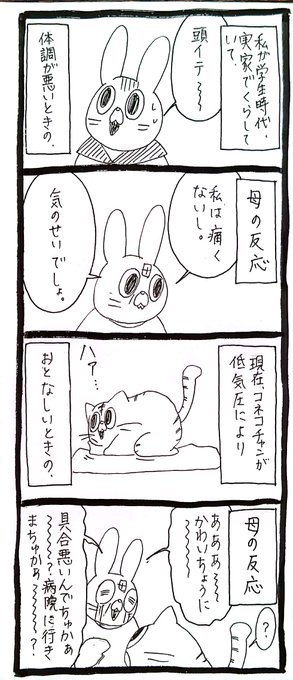 私が学生時代、
実家でくらして
いて、
頭イテ〜〜
体調が悪いときの、
母の反応
私は痛く
ないし。
気のせいでしょ。
現在、コネコチャンが
低気圧により
ハァ…
おとなしいときの、
母の反応
?
あああ〜〜〜
かわいちょうに
〜〜〜〜
具合悪いんでちゅかぁ
〜〜〜〜?病院に行き
まちゅかぁ〜〜〜?